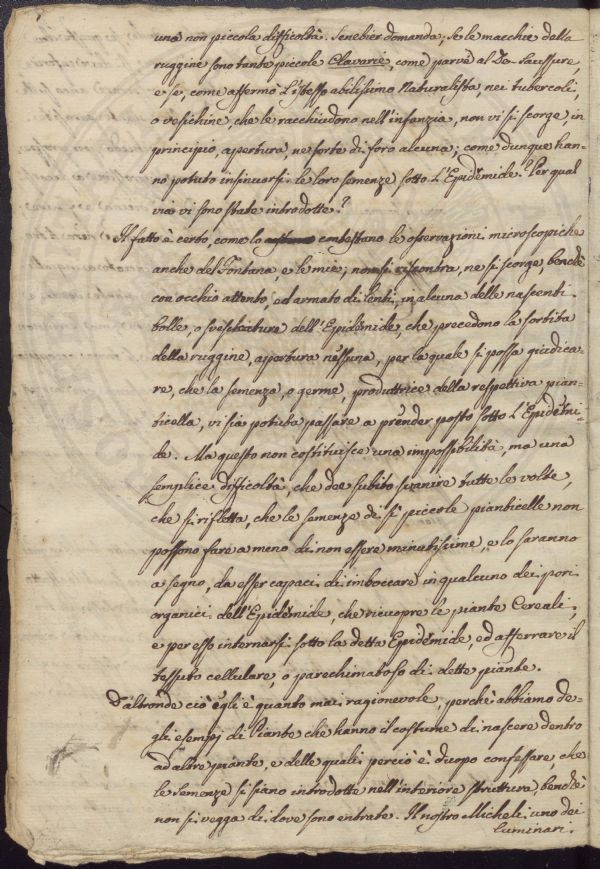 una non piccola difficoltà. Senebier domanda; Se le macchie della
ruggine sono tante piccole Clavarie, come parve al De-Saussure,
e se, come affermò l'istesso abilissimo Naturalista, nei tubercoli,
o vesichine, che le racchiudono nell'infanzia, non vi si scorge, in
principio, apertura, ne sorte di foro alcuna; come dunque han-
no potuto insinuarsi le loro semenze sotto l'Epidèmide? Per qual
via vi sono state introdotte?
Il fatto è certo, come lo contestano le osservazioni microscopiche
anche del Fontana, e le mie; non si riscontra, ne si scorge, benchè
con occhio attento, ed armato di Lenti, in alcuna delle nascenti
bolle, o svescicature dell'Epidèmide, che precedono la sortita
della ruggine, apertura nessuna, per la quale si possa giudica-
re, che la semenza, o germe, produttrice della respettiva pian-
ticella, vi sia potuta passare a prender posto sotto l'Epidèmi-
de. Ma questo non costituisce una impossibilità, ma una
semplice difficoltà, che dee subito svanire tutte le volte,
che si rifletta, che le semenze di sì piccole pianticelle non
possono fare a meno di non essere minutissime, e lo saranno
a segno, da esser capaci di imboccare in qualcuno dei pori
organici dell'Epidèmide, che ricuopre le piante Cereali,
e per esso internarsi sotto la detta Epidèmide, ed afferrare il
tessuto cellulare, o parechimatoso di dette piante.
D'altronde ciò egli è quanto mai ragionevole, perchè abbiamo de-
gli esempj di Piante che hanno il costume di nascere dentro
ad altre piante, e delle quali perciò è d'uopo confessare, che
le semenze si siano introdotte nell'interiore struttura, benchè
non si vegga di dove sono entrate. Il nostro Micheli uno dei
luminari.